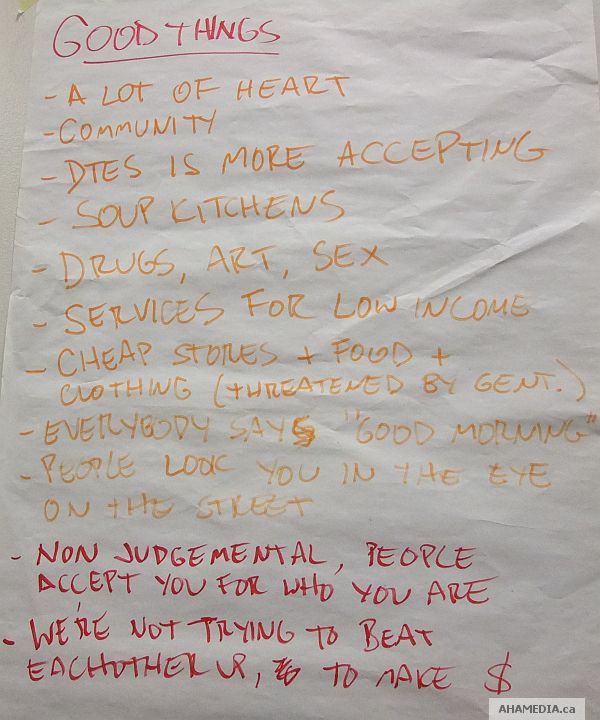 GOOD THINGS
- A LOT OF HEART
- COMMUNITY
- DTES IS MORE ACCEPTING
- SOUP KITCHENS
- DRUGS, ART, SEX
- SERVICES FOR LOW INCOME
- CHEAP STORES + FOOD +
CLOTHING (THREATENED BY GENT.)
- EVERYBODY SAYS "GOOD MORNING"
- PEOPLE LOOK YOU IN THE EYE
ON THE STREET
- NON JUDGEMENTAL, PEOPLE
ACCEPT YOU FOR WHO YOU ARE
- WE'RE NOT TRYING TO BEAT
EACHOTHER UP, TO MAKE $
AHAMEDIA.ca